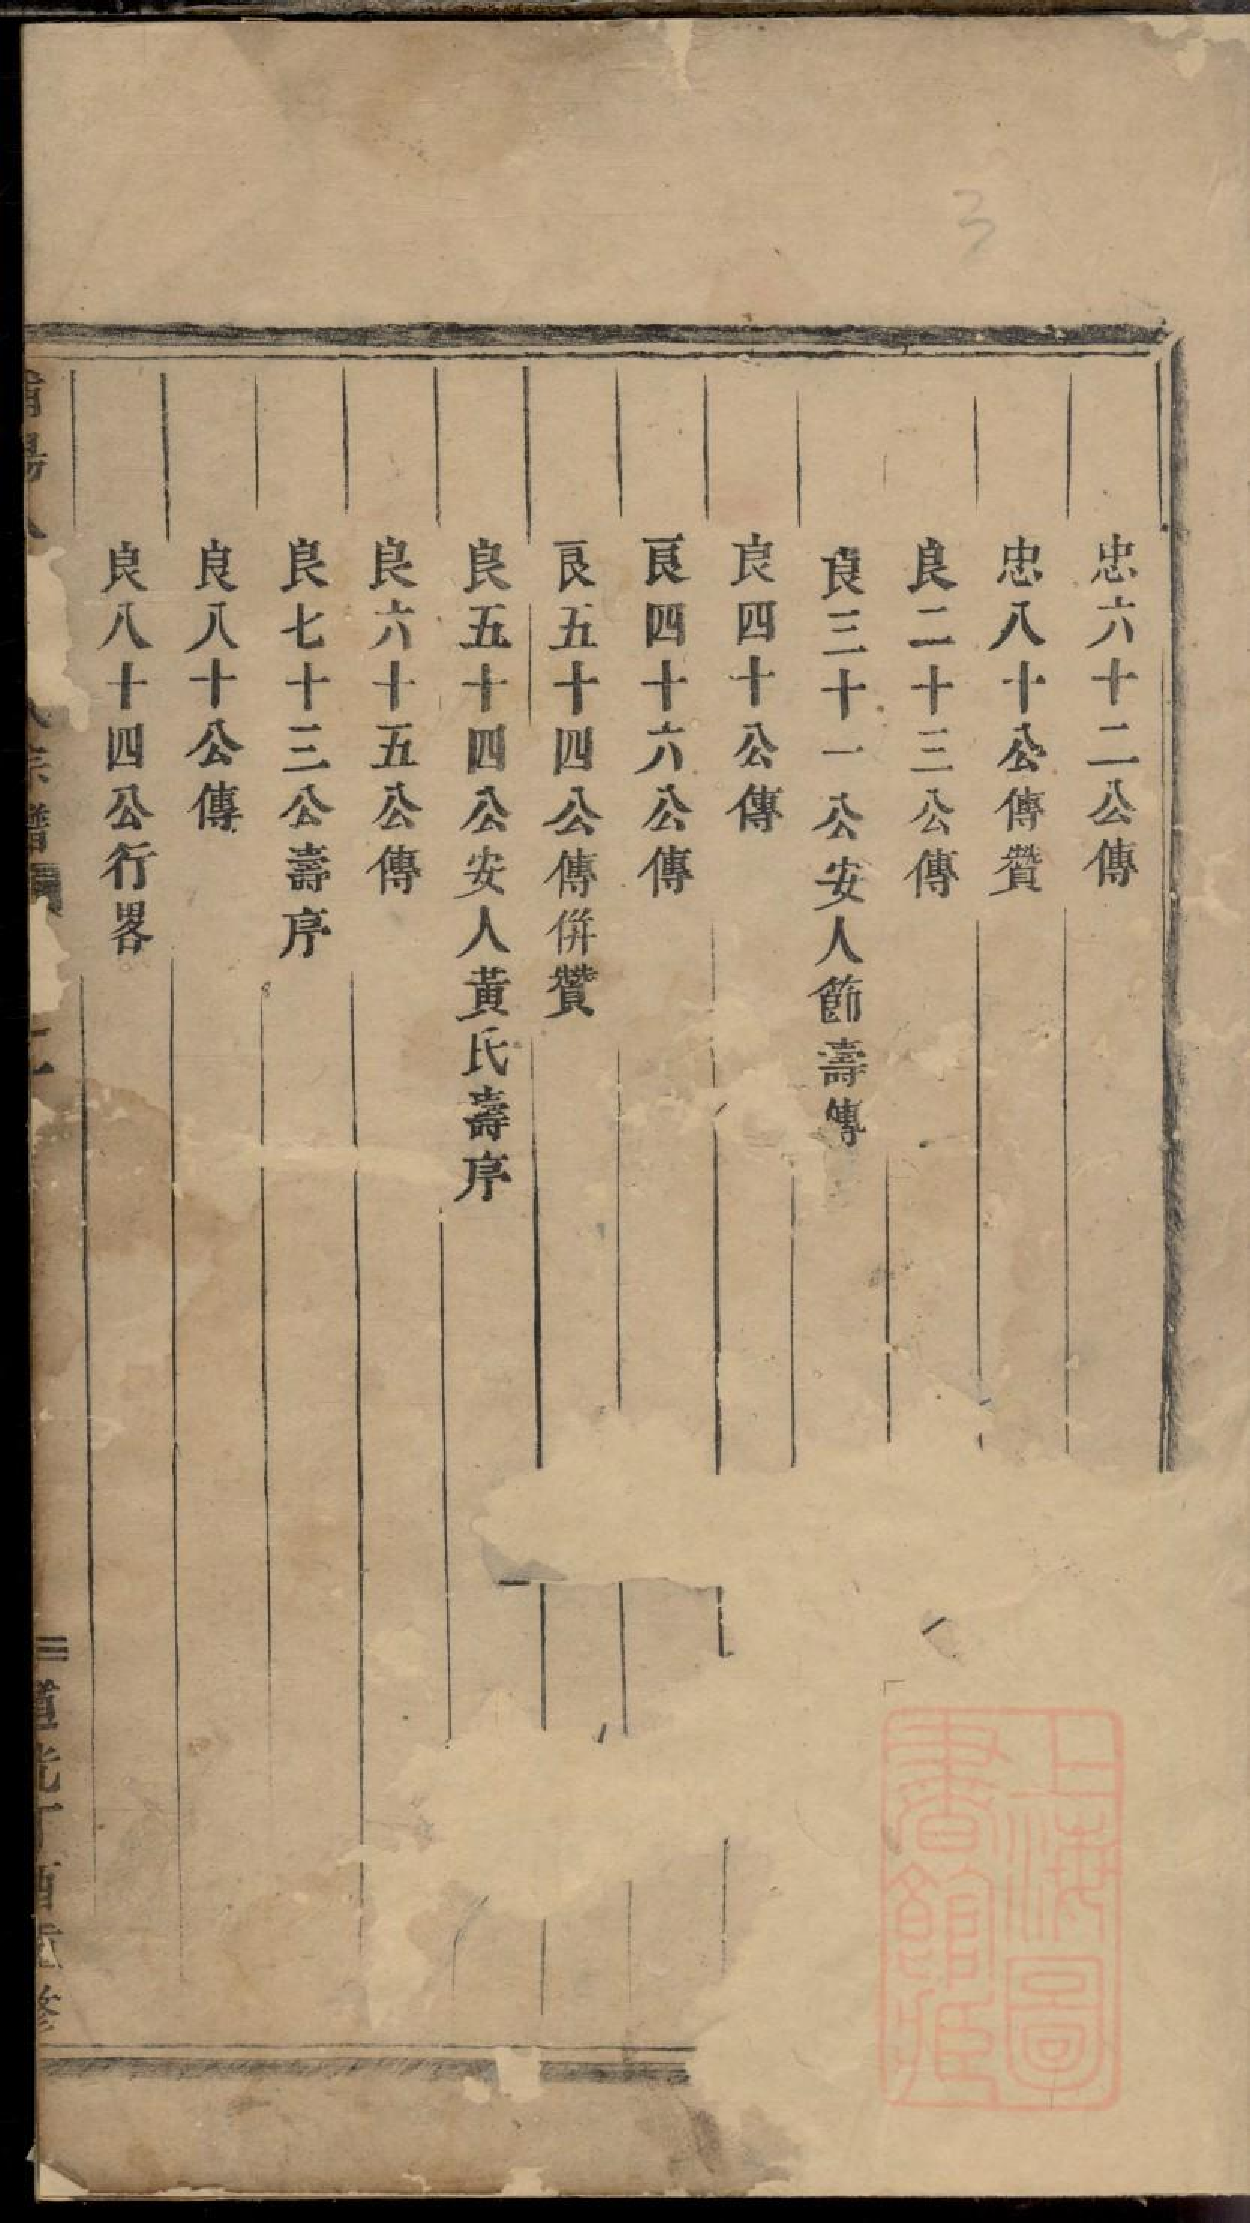 忠六十二公傳
忠八十公傳贊
良二十三公傳
良三十一公安人節壽傳
良四十公傳
良四十六公傳
良五十四公傳併贊
良五十四公安人黃氏壽序
良六十五公傳
良七十三公壽序
良八十公傳
良八十四公行畧
宗譜
道光丁酉重修
上海圖
書館藏
3